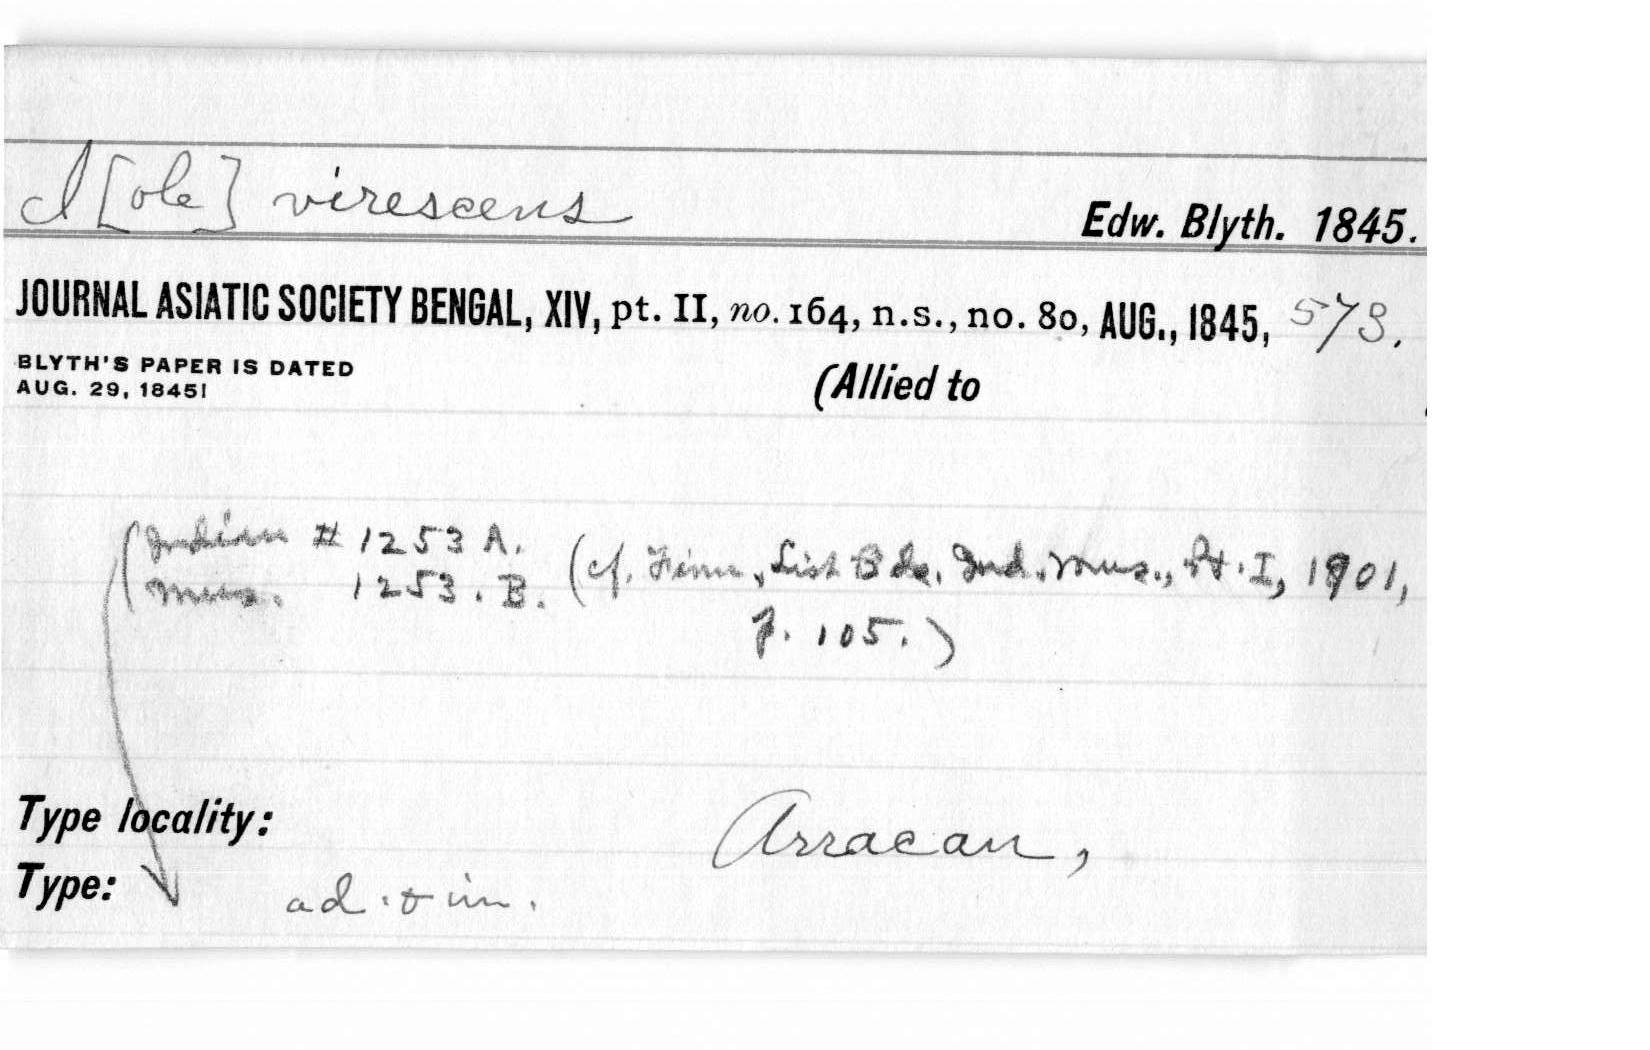 I[ole] virescens
Edw. Blyth. 1845.
JOURNAL ASIATIC SOCIETY BENGAL, XIV, pt. II, no. 164, n.s., no. 80, AUG., 1845, 573.
BLYTH'S PAPER IS DATED
AUG. 29, 1845!
(Allied to
(Indian # 1253 A.
Mus. 1253. B. (cf. Finn, List Bds. Ind. Mus., Pt. I, 1901,
p. 105.)
Type locality: Arracan,
Type: ad. & im.